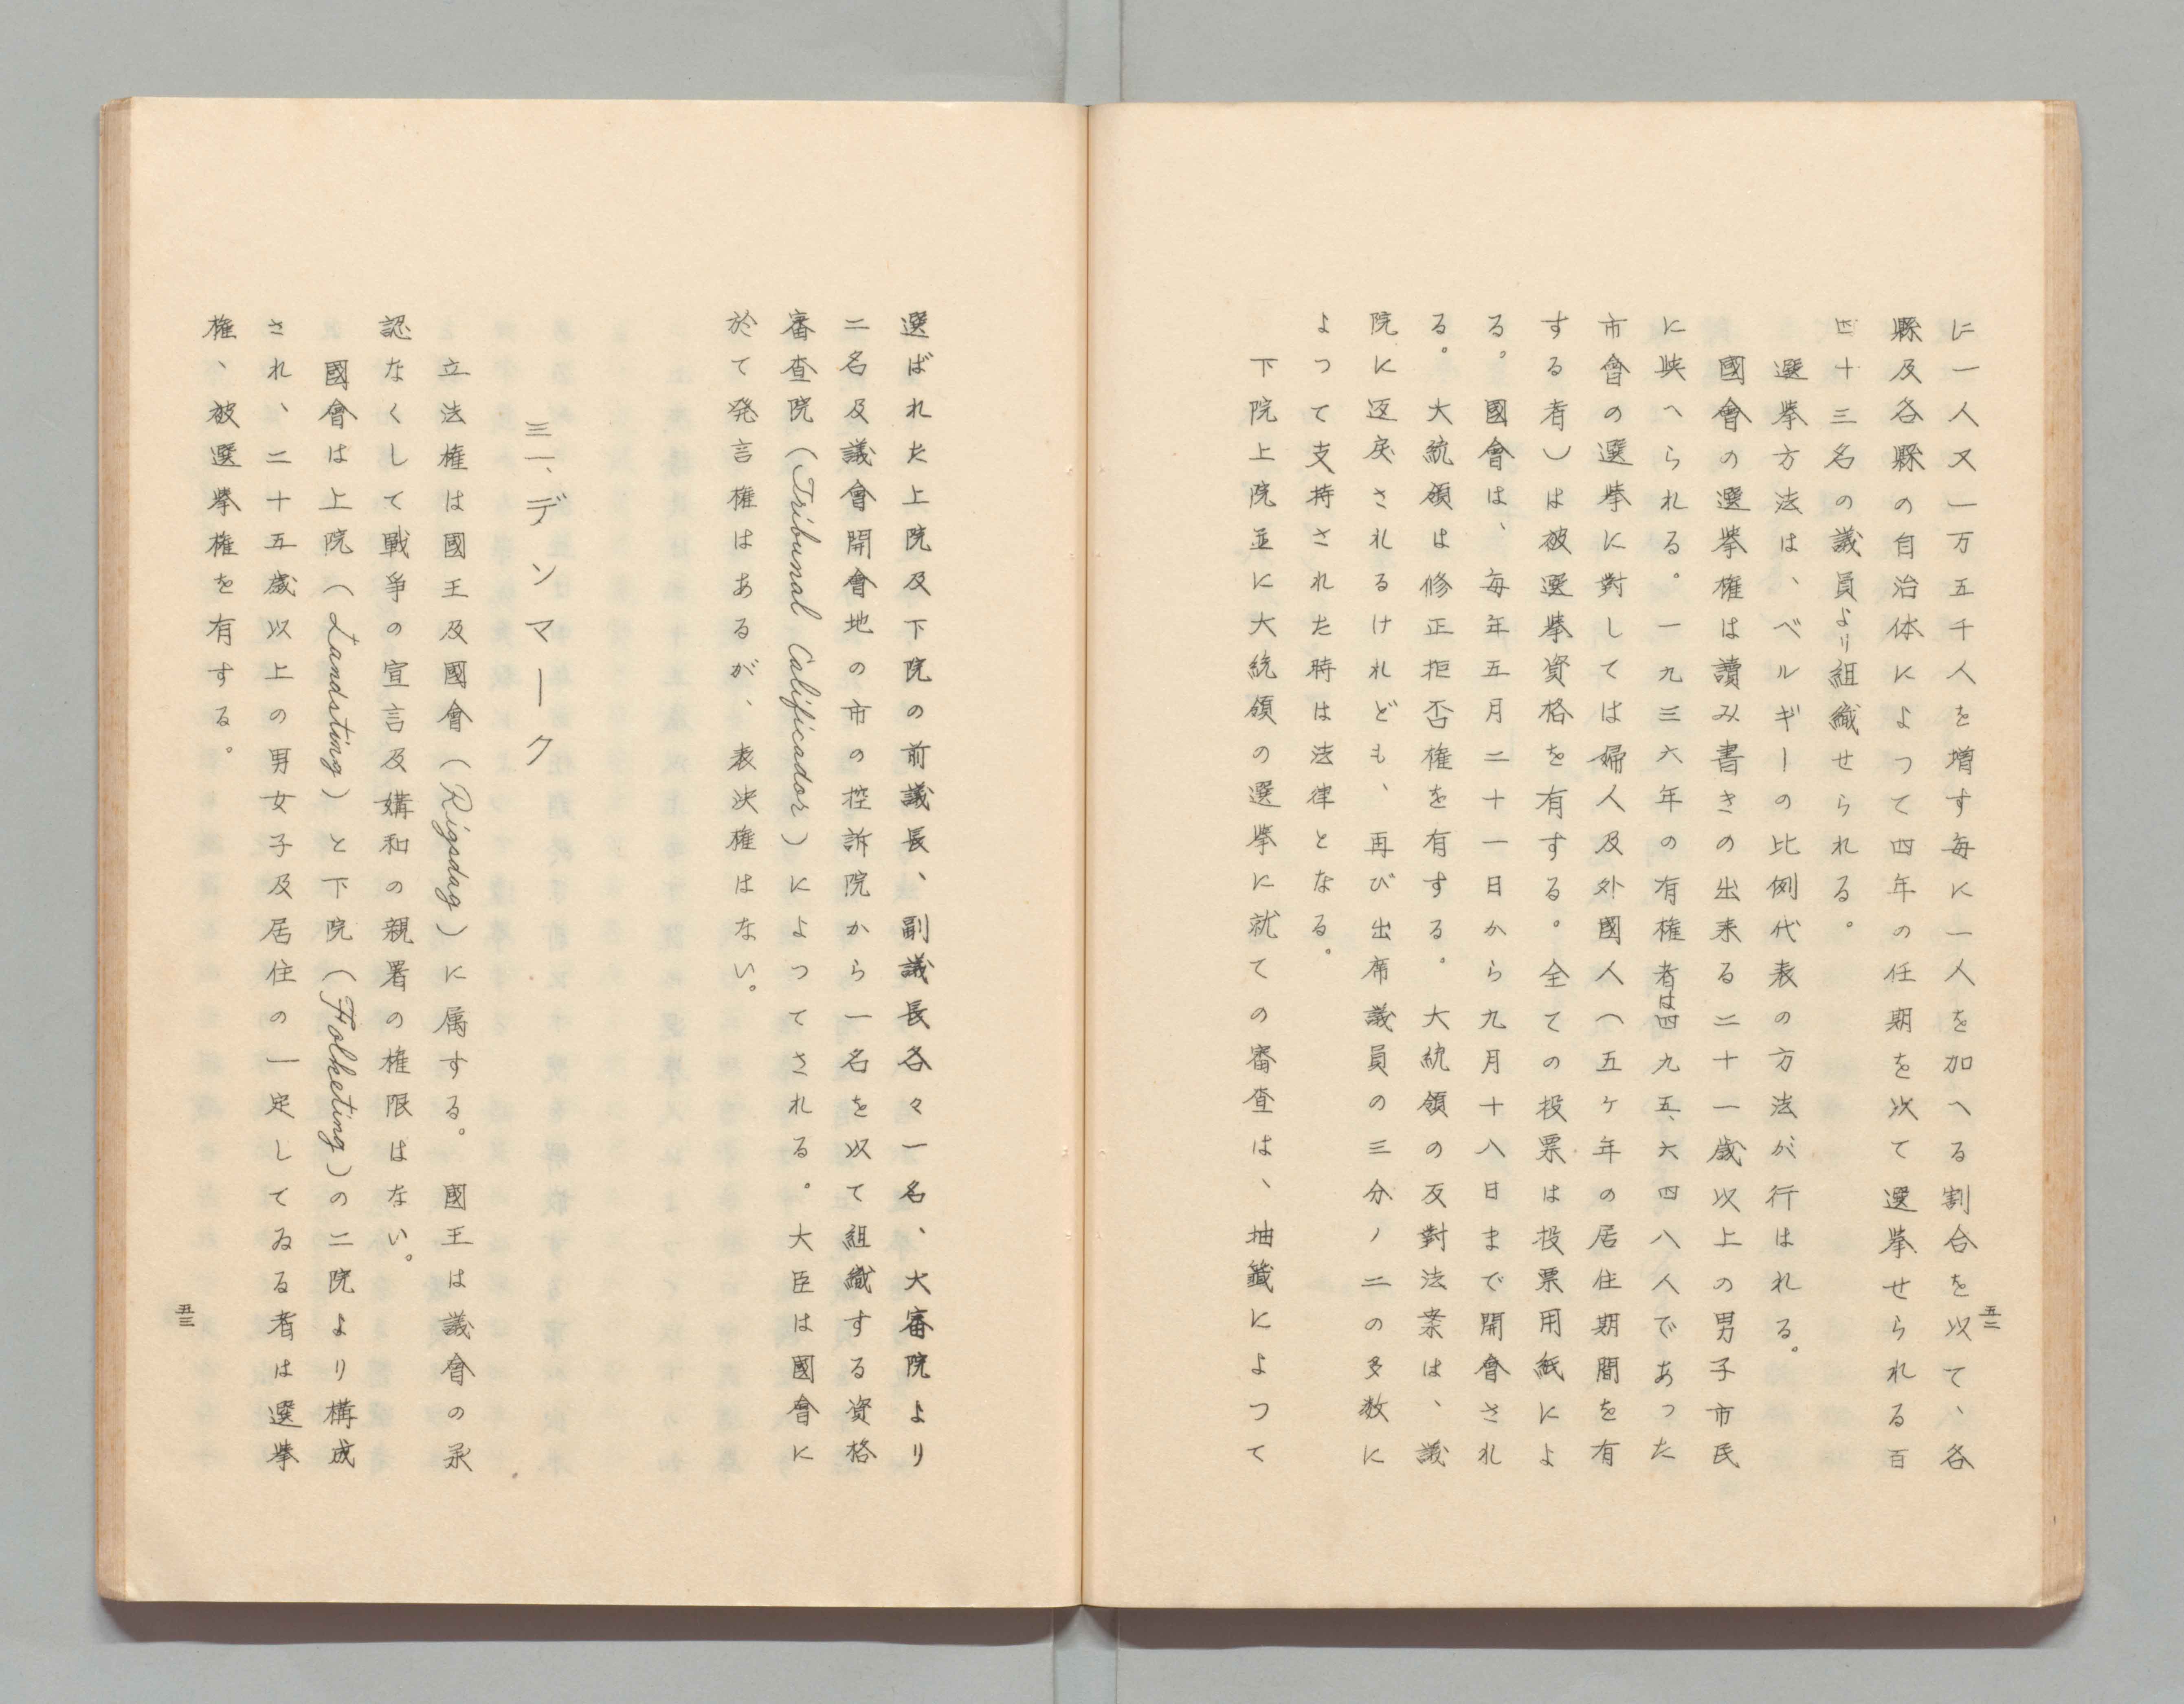 に一人又一万五千人を増す毎に一人を加へる割合を以て、各
縣及各縣の自治体によつて四年の任期を以て選挙せられる百
四十三名の議員より組織せられる。
選挙方法は、ベルギーの比例代表の方法が行はれる。
國會の選挙権は讀み書きの出来る二十一歳以上の男子市民
に与へられる。一九三六年の有権者は四九五、六四八人であつた
市會の選挙に對しては婦人及外國人（五ヶ年の居住期間を有
する者）は被選挙資格を有する。全ての投票は投票用紙によ
る。國會は、毎年五月二十一日から九月十八日まで開會され
る。大統領は修正拒否権を有する。大統領の反對法案は、議
院に返戻されるけれども、再び出席議員の三分ノ二の多数に
よつて支持された時は法律となる。
下院上院並に大統領の選挙に就ての審査は、抽籤によつて
五二
選ばれた上院及下院の前議長、副議長各々一名、大審院より
二名及議會開會地の市の控訴院から一名を以て組織する資格
審査院（Tribunal Calificador）によつてされる。大臣は國會に
於て発言権はあるが、表決権はない。
三一、デンマーク
立法権は國王及國會（Rigsdag）に属する。國王は議會の承
認なくして戰爭の宣言及媾和の親署の権限はない。
國會は上院（Landsting）と下院（Folketing）の二院より構成
され、二十五歳以上の男女子及居住の一定してゐる者は選挙
権、被選挙権を有する。
五三